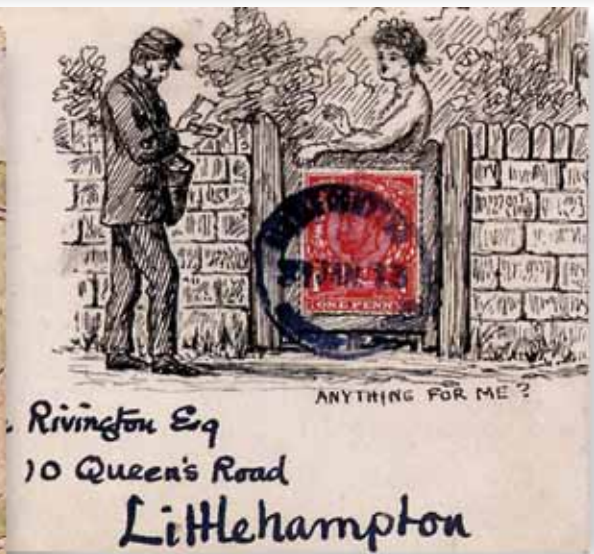 JAN 13
ONE PENNY
ANYTHING FOR ME?
Rivington Esq
10 Queen's Road
Littlehampton